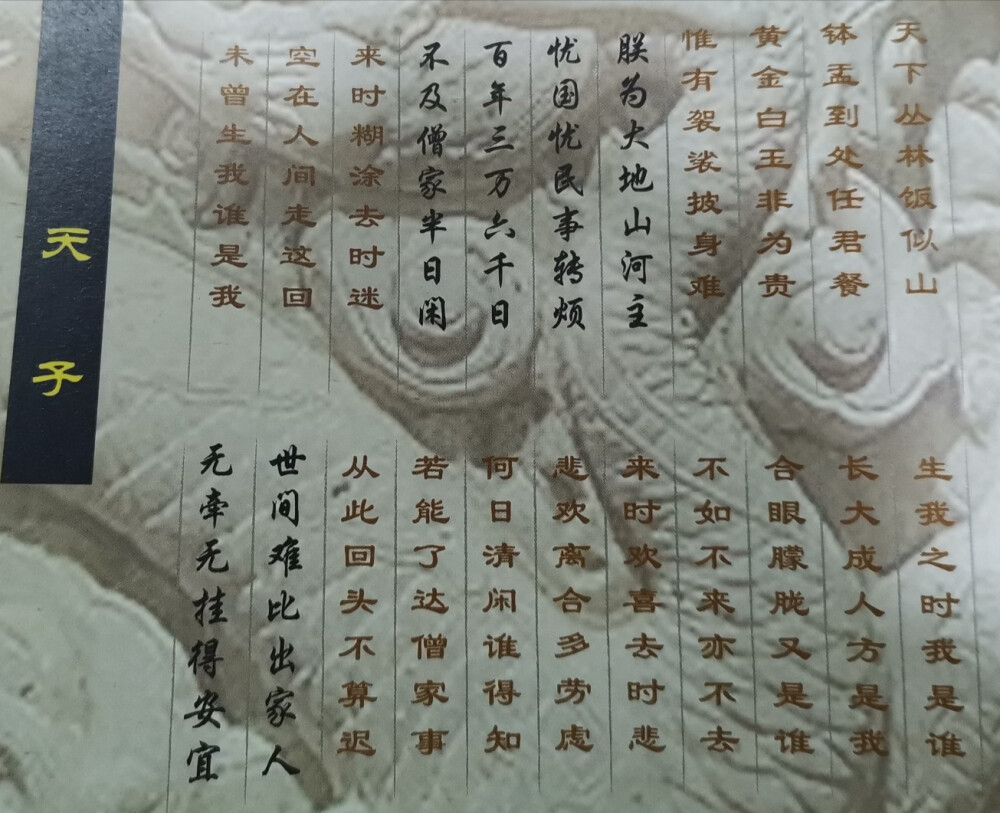 天下丛林饭似山
钵盂到处任君餐
黄金白玉非为贵
惟有袈裟披身难
朕为大地山河主
忧国忧民事转烦
百年三万六千日
不及僧家半日闲
来时糊涂去时迷
空在人间走这回
未曾生我谁是我
生我之时我是谁
长大成人方是我
合眼朦胧又是谁
不如不来亦不去
来时欢喜去时悲
悲欢离合多劳虑
何日清闲谁得知
若能了达僧家事
从此回头不算迟
世间难比出家人
无牵无挂得安宜
天子